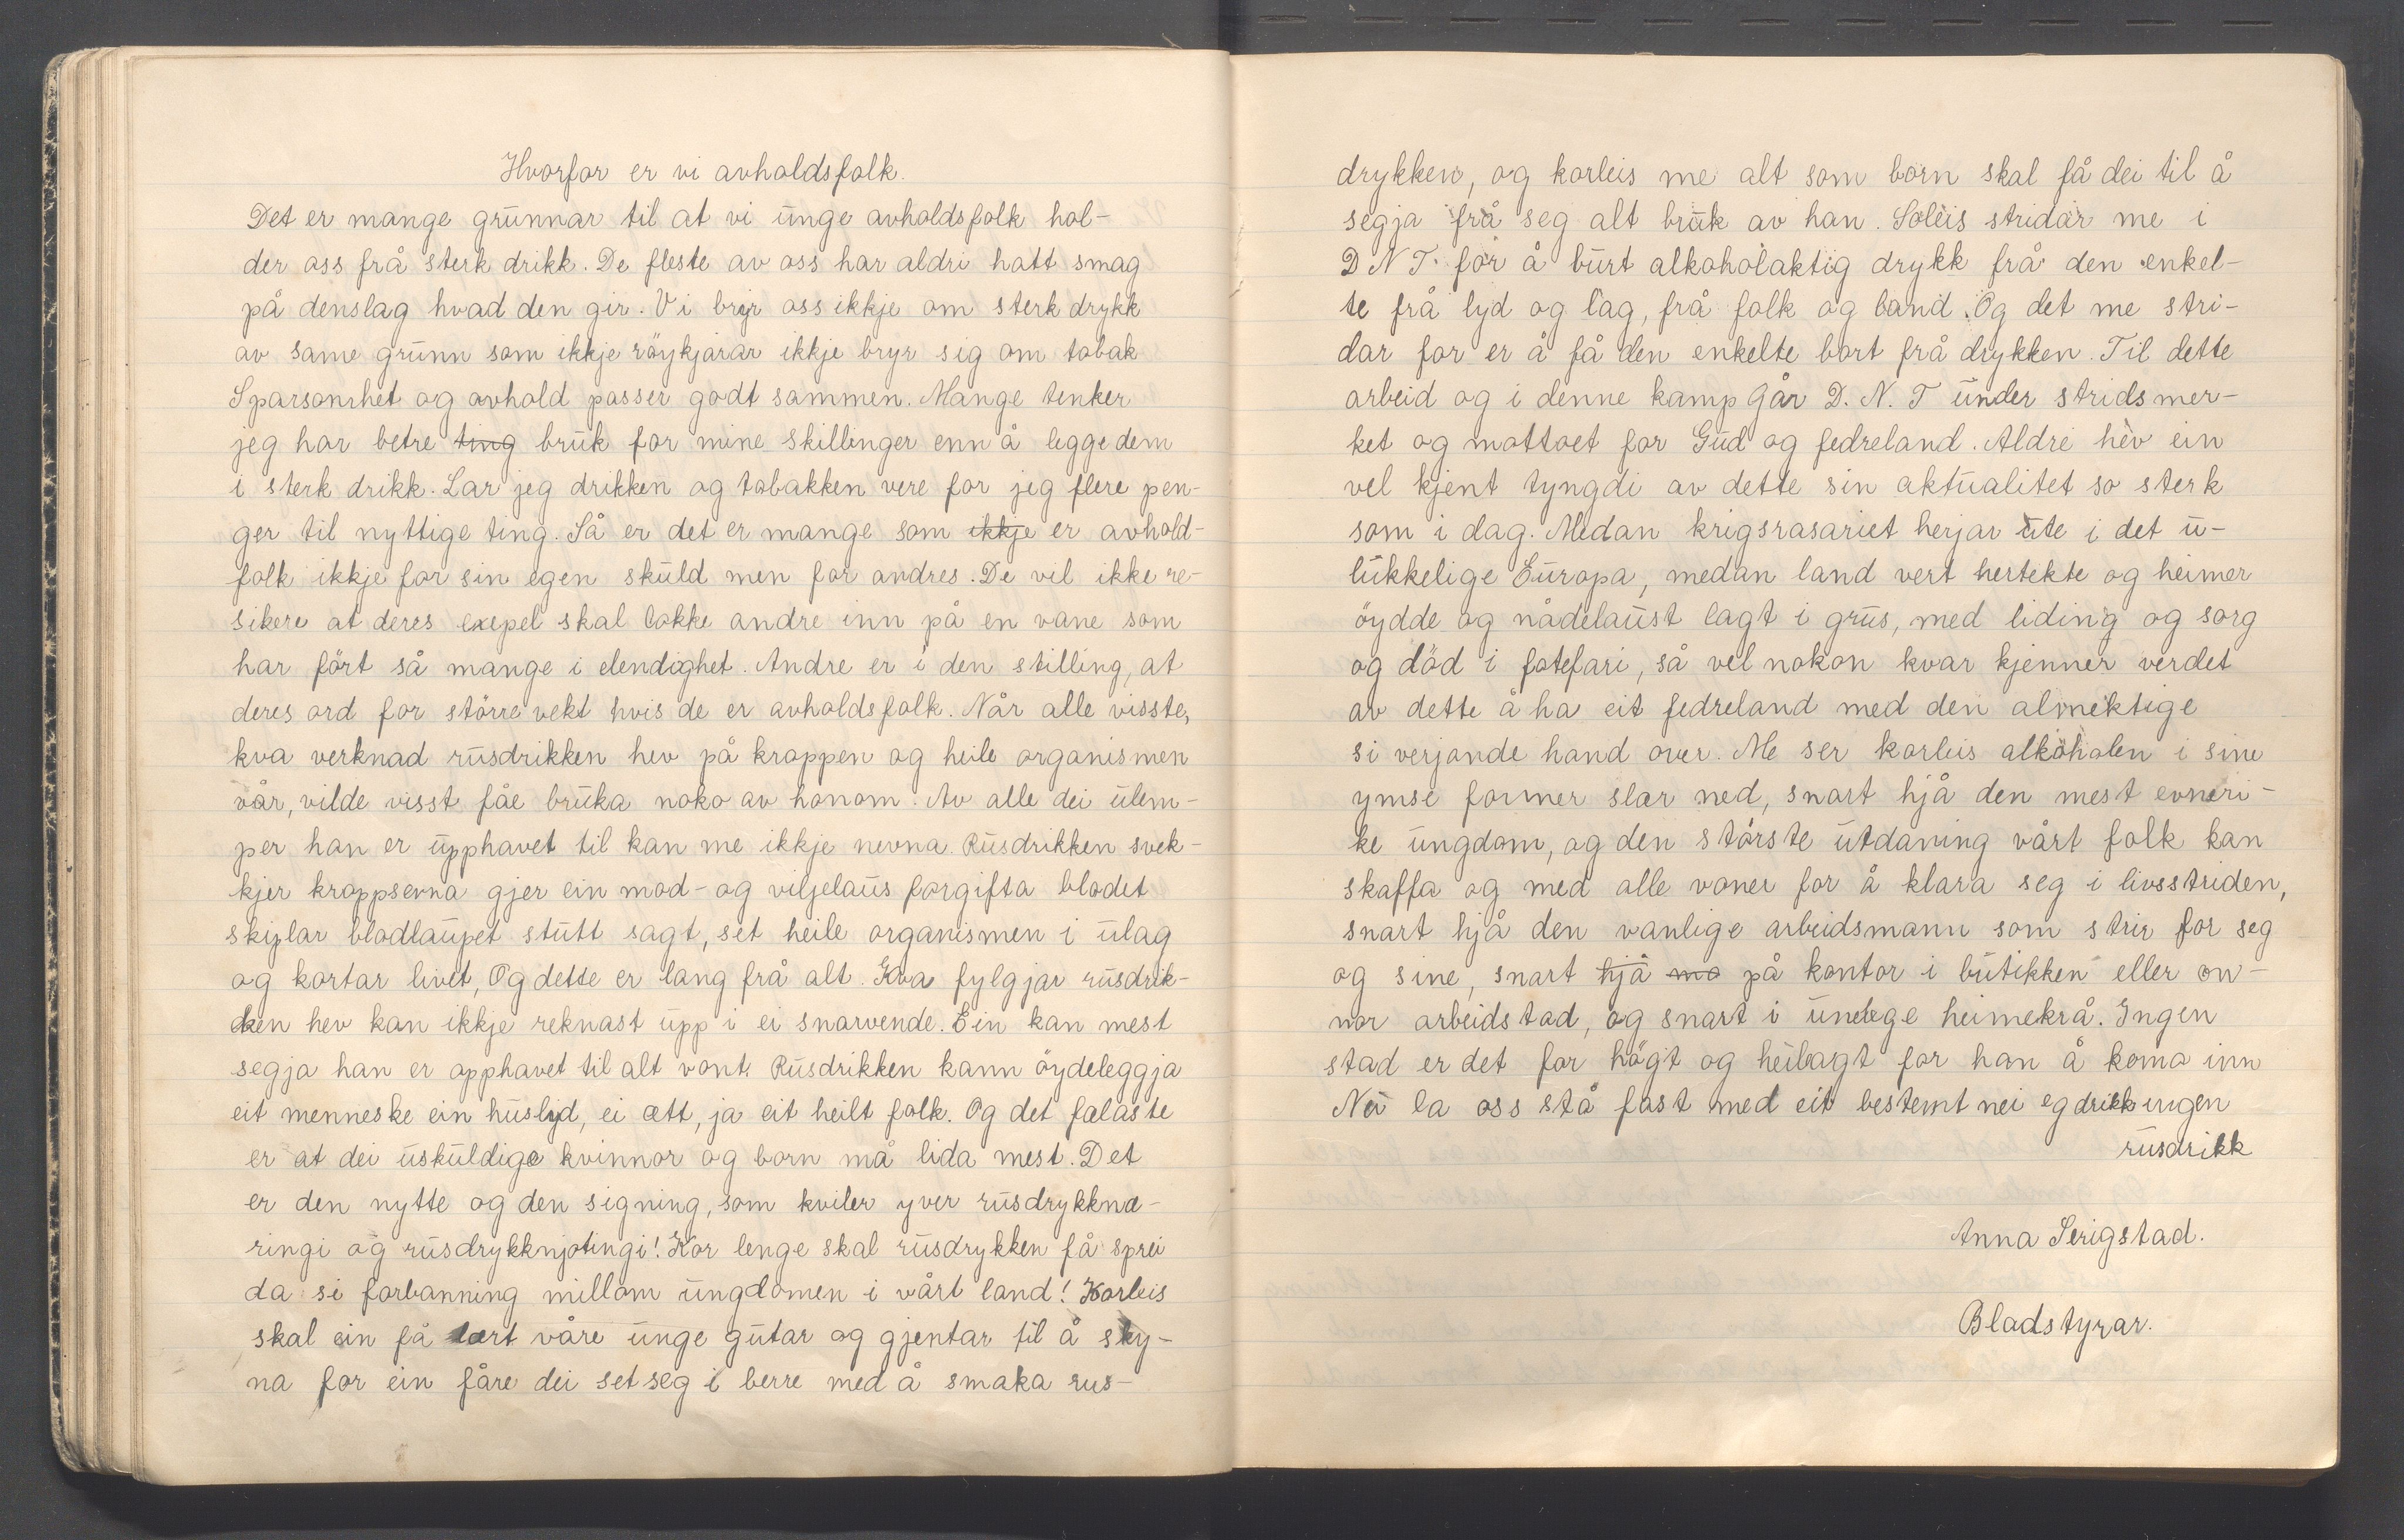 Hvorfor er vi avholdsfolk.
Det er mange grunnar til at vi unge avholdsfolk hol-
der oss frå sterk drikk. De fleste av oss har aldri hatt smag
på denslag hvad den gir. Vi bryr oss ikkje om sterk drykk
av same grunn som ikkje röykjarar ikkje bryr sig om tobak
Sparsomhet og avhold passer godt sammen. Mange tenker
jeg har betre ting bruk for mine skillinger enn å legge dem
i sterk drikk. Lar jeg drikken og tobakken vere for jeg flere pen-
ger til nyttige ting. Så er det er mange som ikkje er avhold-
folk ikkje for sin egen skuld men for andres. De vil ikke re-
sikere at deres exepel skal lokke andre inn på en vane som
har fört så mange i elendighet. Andre er i den stilling, at
deres ord for större vekt hvis de er avholdsfolk. Når alle visste,
kva verknad rusdrikken hev på kroppen og heile organismen
vår, vilde visst fåe bruka noko av honom. Av alle dei ulem-
per han er upphavet til kan me ikkje nevna. Rusdrikken svek-
kjer kroppsevna gjer ein mod- og viljelaus forgifta blodet
skiplar blodlaupet stutt sagt, set heile organismen i ulag
og kortar livet, Og dette er lang frå alt. Kva fylgjar rusdrik-
ken hev kan ikkje reknast upp i ei snarvende. Ein kan mest
segja han er opphavet til alt vont. Rusdrikken kann öydeleggja
eit menneske ein huslyd, ei ætt, ja eit heilt folk. Og det fælaste
er at dei uskuldige kvinnor og born må lida mest. Det
er den nytte og den signing, som kviler yver rusdrykknæ-
ringi og rusdrykknjotingi! Kor lenge skal rusdrykken få sprei
da si forbanning millom ungdomen i vårt land! Korleis
skal ein få lært våre unge gutar og gjentar til å sky-
na for ein fåre dei set seg i berre med å smaka rus-
drykken, og korleis me alt som born skal få dei til å
segja frå seg alt bruk av han. Soleis stridar me i
D N T. for å burt alkoholaktig drykk frå den enkel-
te frå lyd og lag, frå folk og land. Og det me stri-
dar for er å få den enkelte bort frå drykken. Til dette
arbeid og i denne kamp går D. N. T under stridsmer-
ket og mottoet for Gud og fedreland. Aldri hev ein
vel kjent tyngdi av dette sin aktualitet so sterk
som i dag. Medan krigsrasariet herjar ute i det u-
lukkelige Europa, medan land vert hertekte og heimer
öydde og nådelaust lagt i grus, med liding og sorg
og död i fotefari, så vel nokon kvar kjenner verdet
av dette å ha eit fedreland med den almektige
si verjande hand over. Me ser korleis alkoholen i sine
ymse former slær ned, snart hjå den mest evneri-
ke ungdom, og den störste utdaning vårt folk kan
skaffa og med alle voner for å klara seg i livsstriden,
snart hjå den vanlige arbeidsmann som strir for seg
og sine, snart hjå mo på kontor i butikken eller on-
nor arbeidstad, og snart i undege heimekrå. Ingen
stad er det for högt og heilagt for han å koma inn
Nei la oss stå fast med eit bestemt nei eg drikk ingen
rusdrikk
Anna Serigstad.
Bladstyrar.